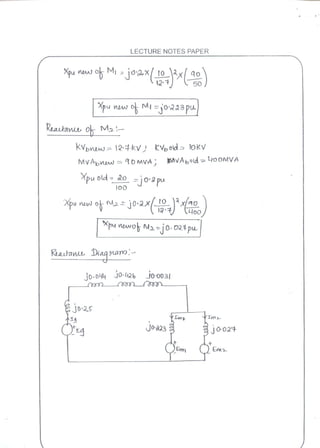 LECTURE NOTES PAPER
Xpu new of M1 = j0.2 x (10/12.7)² x (90/50)
Xpu new of M1 = j0.223 pu
Reactance of M2 :-
KVb new = 12.7 KV ; KVb old = 10KV
MVAb new = 90 MVA ; MVAb old = 400MVA
Xpu old = 20/100 = j0.2 pu
Xpu new of M2 = j0.2 x (10/12.7)² x (90/400)
Xpu new of M2 = j0.028 pu
Reactance Diagram :-
j0.25
Eg
Im1 Im2
j0.223 j0.027
Em1 Em2